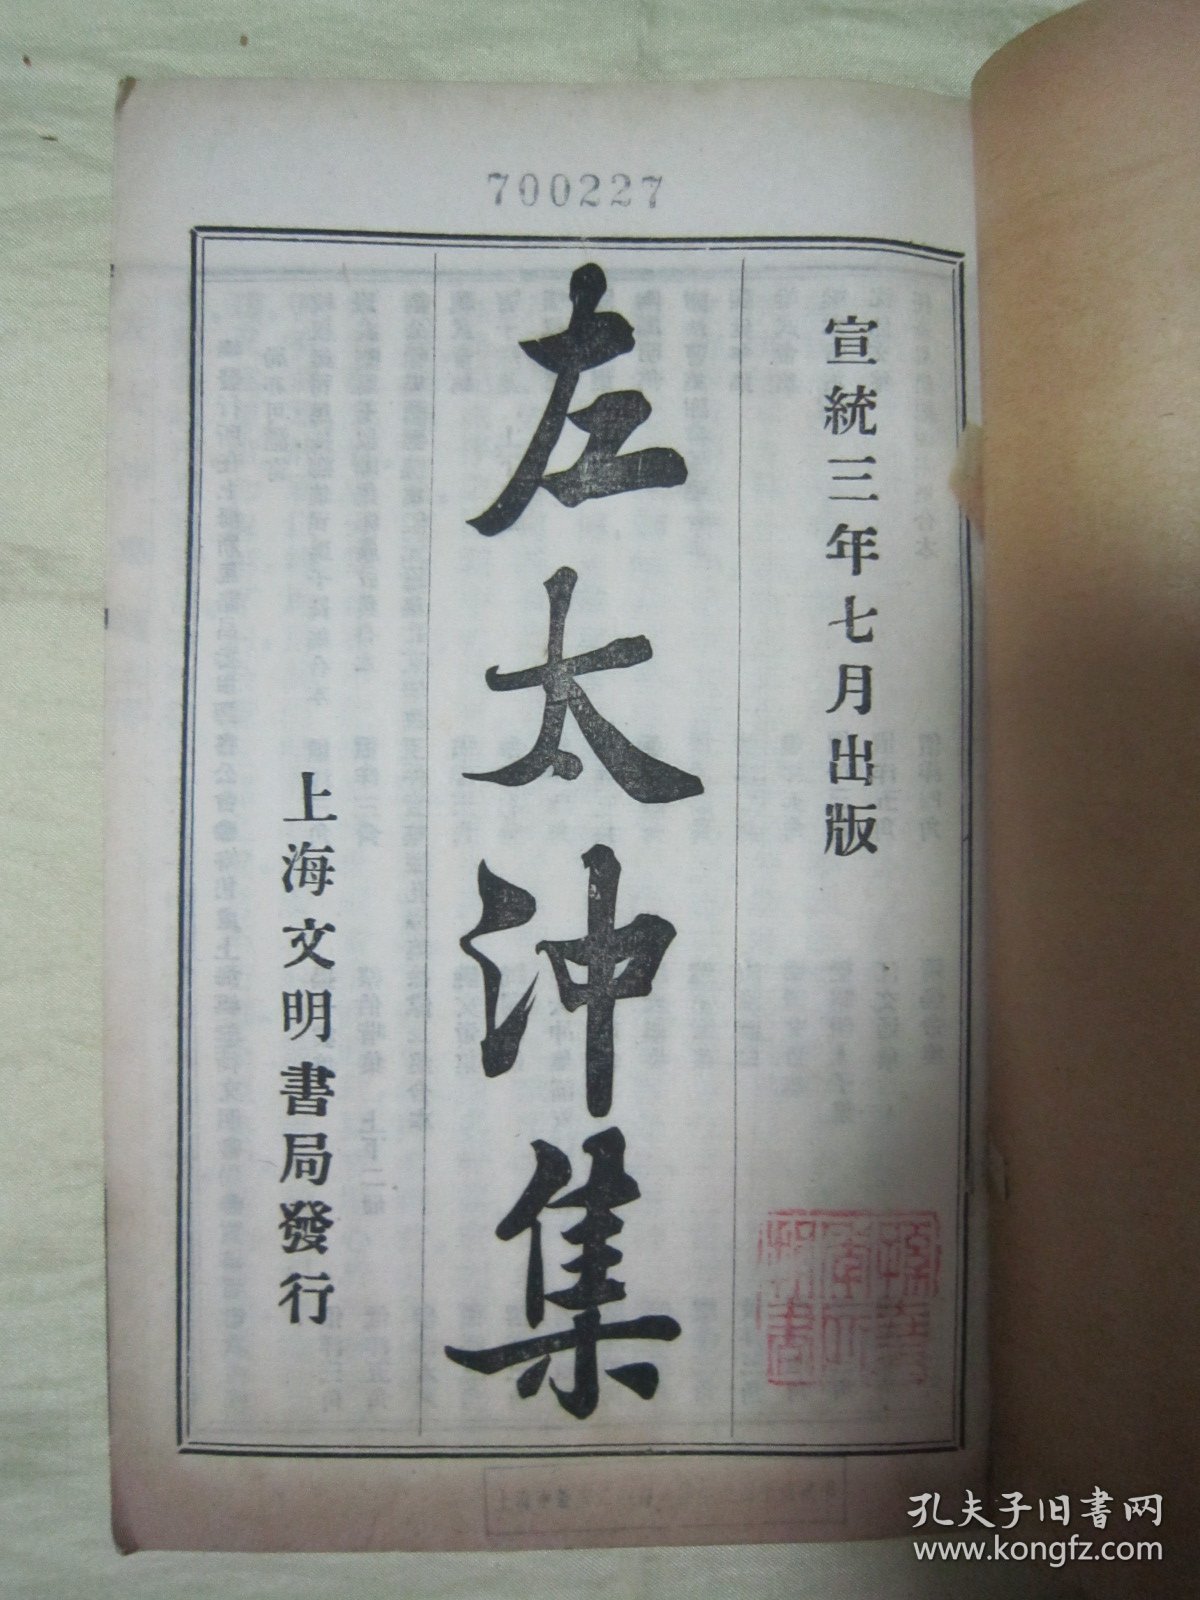 700227
宣統三年七月出版
左太沖集
上海文明書局發行
孔夫子旧书网
www.kongfz.com